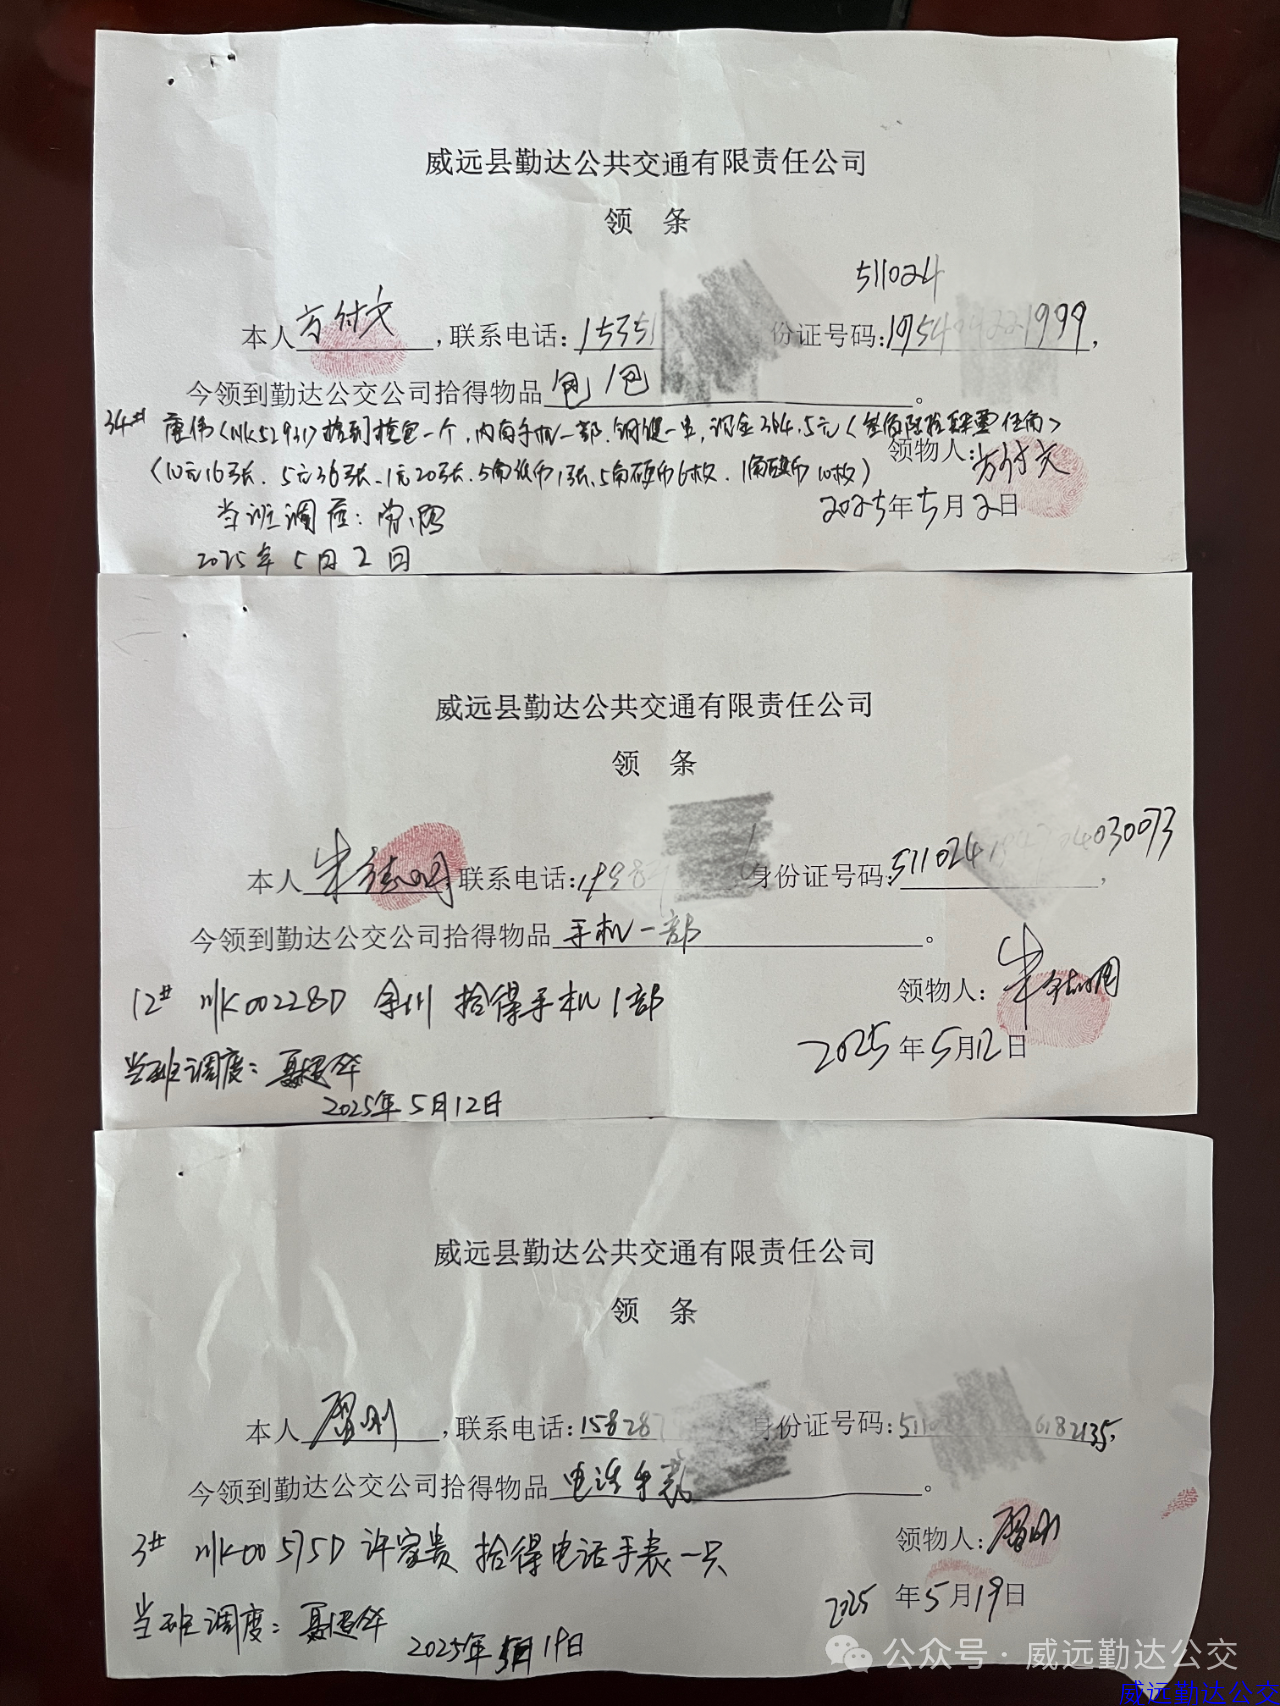 威远县勤达公共交通有限责任公司
领 条
511024
本人方付文,联系电话:15351 份证号码:1954 1999,
今领到勤达公交公司拾得物品包1包。
34# 唐伟(川K52931)拾到挎包一个,内有手机一部.钥匙一串,现金364.5元
领物人:方付文
(10元16张、5元36张、1元20张、5角纸币1张、5角硬币6枚、1角硬币10枚)
2025年5月2日
当班调度:
2025年5月2日
威远县勤达公共交通有限责任公司
领 条
本人 联系电话:1998 身份证号码:511024 030073,
今领到勤达公交公司拾得物品手机一部。
领物人:
12# 川K00228D 余川 拾得手机1部
2025年5月12日
当班调度:聂建华
2025年5月12日
威远县勤达公共交通有限责任公司
领 条
本人 ,联系电话:158287 身份证号码:511 6182135,
今领到勤达公交公司拾得物品电话手表。
领物人:
3# 川K00575D 许家贵 拾得电话手表一只
2025年5月19日
当班调度:聂建华
2025年5月19日
公众号·威远勤达公交
威远勤达公交